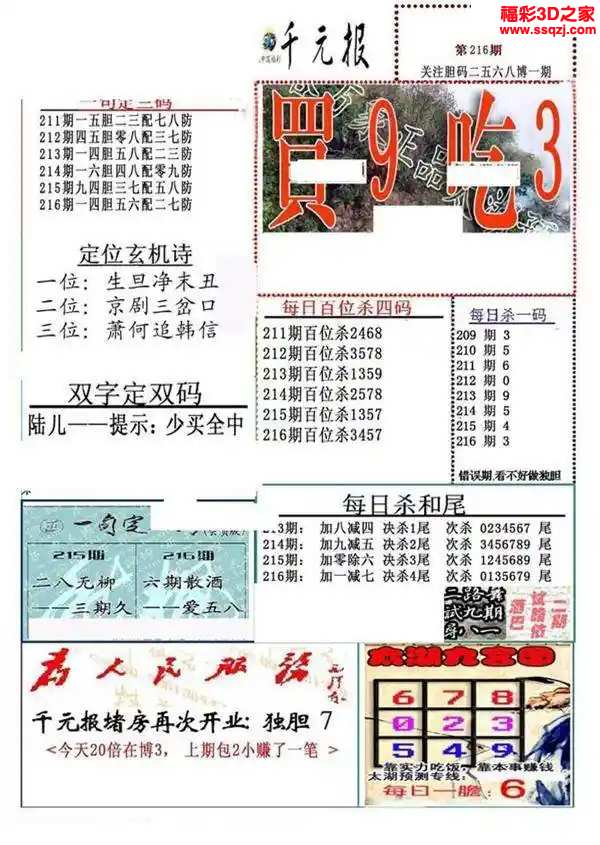 福彩3D之家
www.ssqzj.com
千元报
第216期
关注胆码二五六八博一期
一句定三码
211期一五胆二三配七八防
212期四五胆零八配三七防
213期一四胆五八配二三防
214期一六胆四八配零九防
215期九四胆三七配五八防
216期一四胆五六配二七防
買9吃3
定位玄机诗
一位：生旦净末丑
二位：京剧三岔口
三位：萧何追韩信
每日百位杀四码
211期百位杀2468
212期百位杀3578
213期百位杀1359
214期百位杀2578
215期百位杀1357
216期百位杀3457
每日杀一码
209期 3
210期 5
211期 6
212期 0
213期 9
214期 5
215期 4
216期 3
错误期,看不好做独胆
双字定双码
陆儿——提示：少买全中
一句定
215期
二八无柳
——三期久
216期
六期散酒
——爱五八
每日杀和尾
213期： 加八减四 决杀1尾 次杀 0234567 尾
214期： 加九减五 决杀2尾 次杀 3456789 尾
215期： 加零除六 决杀3尾 次杀 1245689 尾
216期： 加一减七 决杀4尾 次杀 0135679 尾
二路舞
试九期
身八一
为人民服务
千元报堵房再次开业：独胆 7
<今天20倍在博3， 上期包2小赚了一笔 >
太湖九宫图
6 7 8
0 2 3
5 4 9
靠实力吃饭，靠本事赚钱
太湖预测专线：
每日一胆： 6